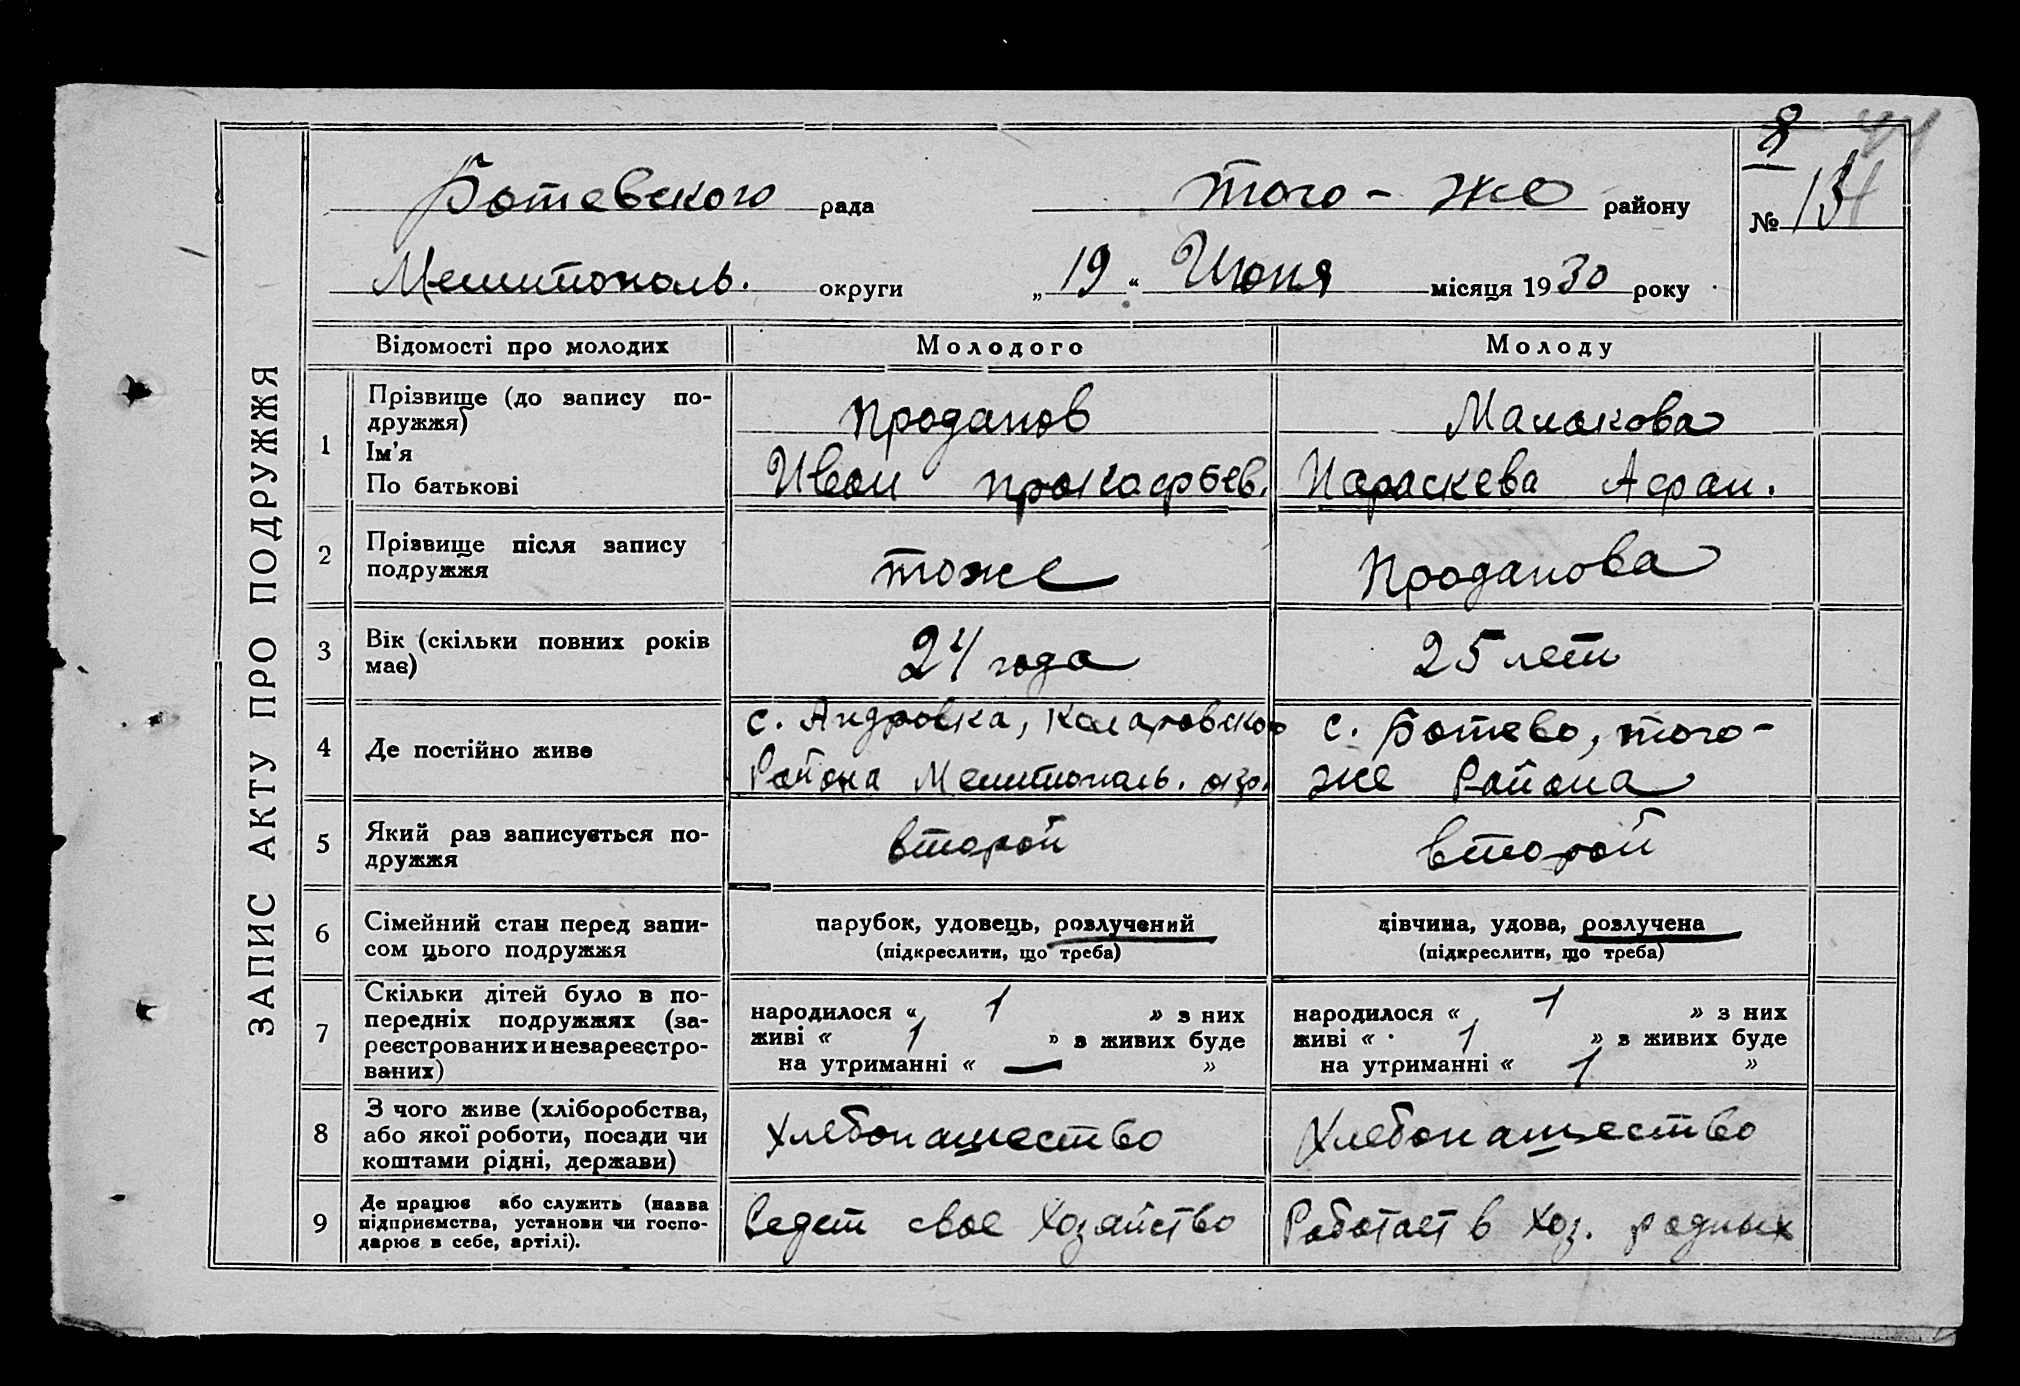 ЗАПИС АКТУ ПРО ПОДРУЖЖЯ
8
Ботевского рада того-же району № 13
Мелитополь. округи „19“ Июня місяця 1930 року
Відомості про молодих Молодого Молоду
1 Прізвище (до запису по-
дружжя) Проданов Малакова
Ім'я
По батькові Иван Прокофьев. Параскева Афан.
2 Прізвище після запису
подружжя тоже Проданова
3 Вік (скільки повних років
має) 24 года 25 лет
4 Де постійно живе
с. Андровка, Коларовского
Района Мелитополь. окр.
с. Ботево, того-
же Района
5 Який раз записується по-
дружжя второй второй
6 Сімейний стан перед запи-
сом цього подружжя
парубок, удовець, розлучений
(підкреслити, що треба)
дівчина, удова, розлучена
(підкреслити, що треба)
7 Скільки дітей було в по-
передніх подружжях (за-
реєстрованих и незареєстро-
ваних)
народилося « 1 » з них
живі « 1 » з живих буде
на утриманні « — »
народилося « 1 » з них
живі « 1 » з живих буде
на утриманні « 1 »
8 З чого живе (хліборобства,
або якої роботи, посади чи
коштами рідні, держави)
Хлебопашество Хлебопашество
9 Де працює або служить (назва
підприємства, установи чи госпо-
дарює в себе, артілі).
Ведет свое хозяйство Работает в хоз. родных